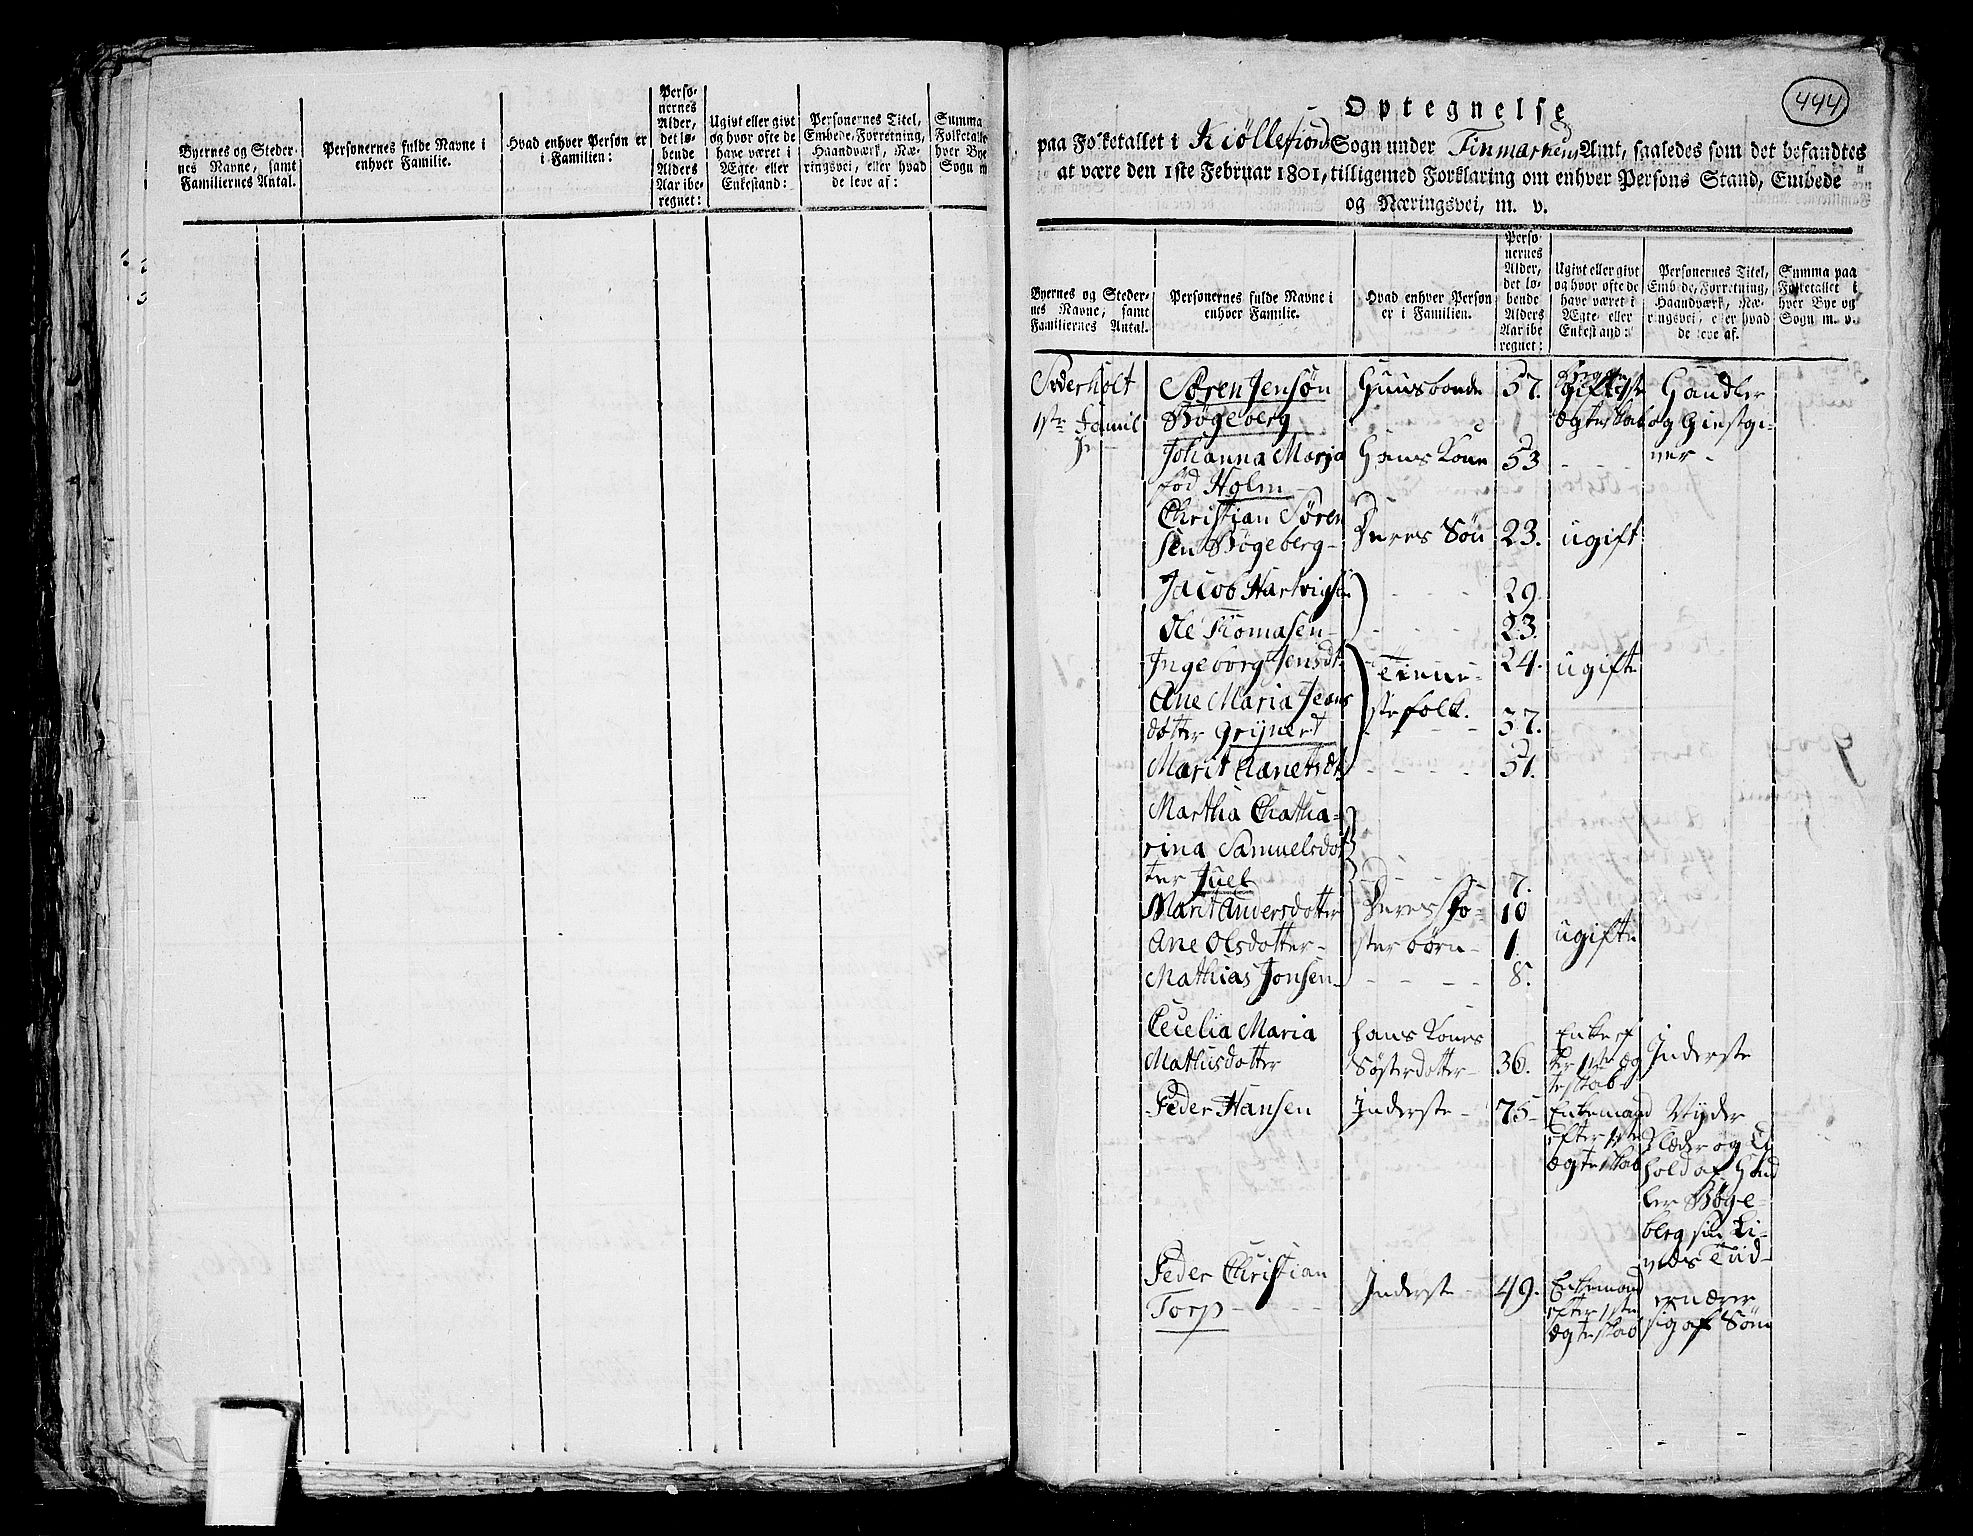 Byernes og Steder-
nes Navne, samt
Familiernes Antal.
Personernes fulde Navne i
enhver Familie.
Hvad enhver Person er
i Familien:
Perso-
nernes
Alder,
det lø-
bende
Alders
Aar ibe-
regnet:
Ugivt eller givt
og hvor ofte de
have været i
Ægte- eller
Enkestand:
Personernes Titel,
Embede, Forretning,
Haandværk, Næ-
ringsvei, eller hvad
de leve af:
Summa
Folketalle
hver Bye
Sogn m
444
Optegnelse
paa Folketallet i Kiøllefiords Sogn under Finmarkens Amt, saaledes som det befandtes
at være den 1ste Februar 1801, tilligemed Forklaring om enhver Persons Stand, Embede
og Næringsvei, m. v.
Byernes og Steder-
nes Navne, samt
Familiernes Antal.
Personernes fulde Navne i
enhver Familie.
Hvad enhver Person
er i Familien.
Perso-
nernes
Alder,
det lø-
bende
Alders
Aar ibe
regnet:
Ugivt eller givt
og hvor ofte de
have været i
Ægte- eller
Enkestand:
Personernes Titel,
Embede, Forretning,
Haandværk, Næ-
ringsvei, eller hvad
de leve af.
Summa paa
Folketallet i
hver Bye og
Sogn m. v.
Søren Jensøn Huusbonde 57. Handler
1ste Famil Bøgeberg Ægteskab og Giestgi-
Johanna Maria Hans Kone 53 - ver -
fød Holm -
Christian Søren
sen Bøgeberg - Deres Søn 23. ugift
Jacob Hartvigsen - - - 29.
Ole Thomasen - - - - 23.
Ingeborg Jensdt. Tiene- 24. ugifte
Ane Maria Jens
dotter Grijnert stefolk. 37.
Marit - - - - 51.
Martha Chatha-
rina Samuelsdot
ter Juel - - - 7.
Marit Andersdotter Deres Fo- 10
Ane Olsdotter - sterbørn - 1. ugifte
Mathias Jonsen - - - - - 8.
Cecelia Maria hans Kones Enke ef
Mathisdotter Søsterdotter - 36. ter 1ste Æg Inderste
teskab -
Peder Hansen Inderste - 75 - Enkemand Nyder
efter 1ste Klæder og U
Ægteskab hold af Hand
ler Bøge-
berg sin Li-
veds Tiid -
Peder Christian Inderste - 49. Enkemand ernærer
Torp - - - efter 1ste
Ægteskab sig af Søen